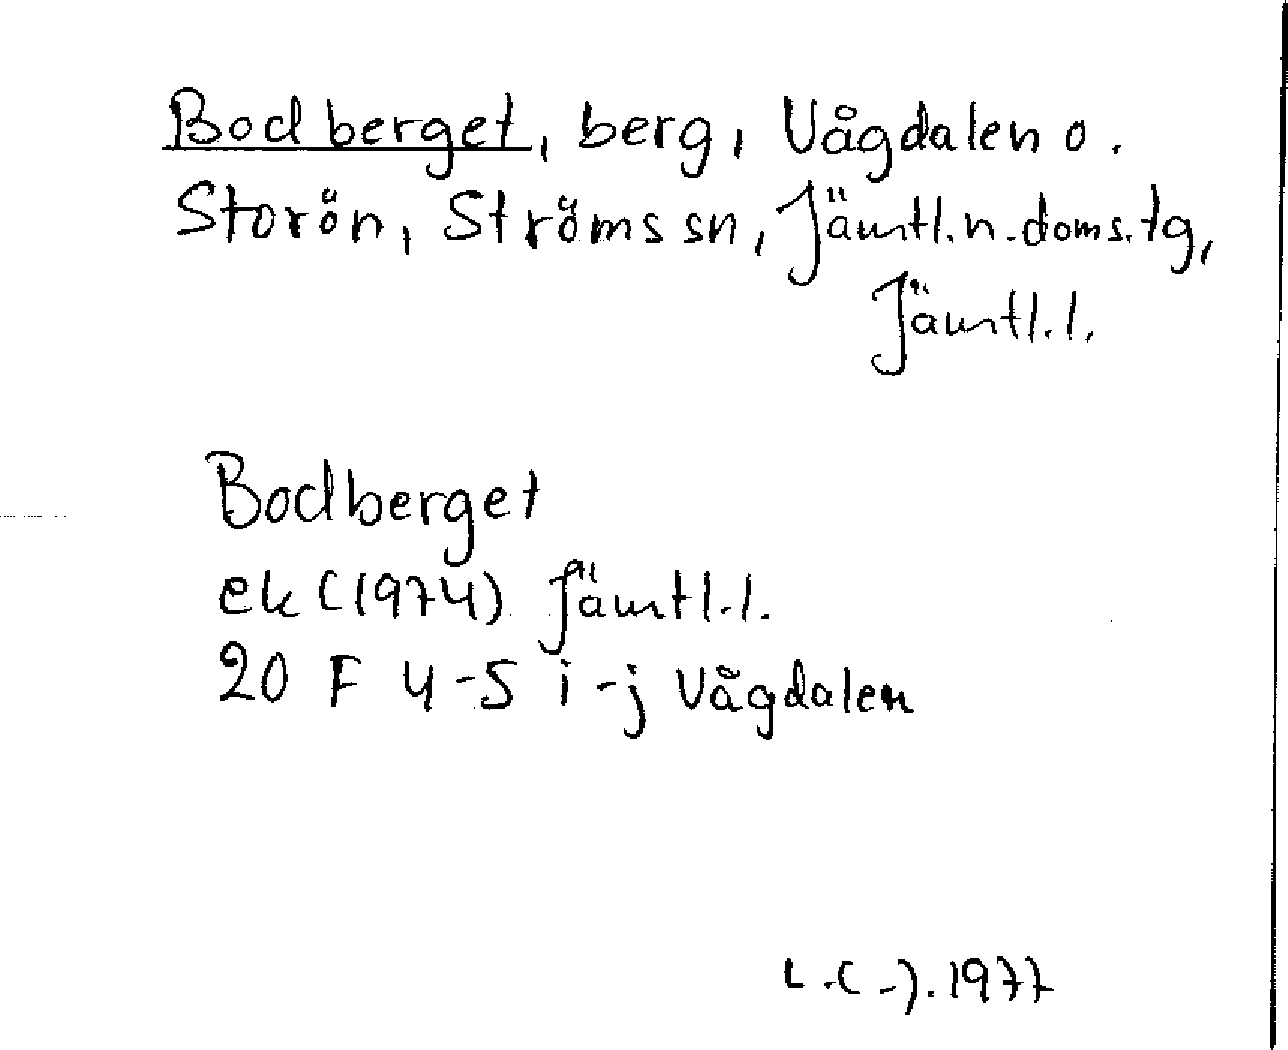 Bodberget, berg, Vågdalen o.
Storön, Ströms sn, Jämtl. n. doms. tg,
Jämtl. l.
Bodberget
ek (1974) Jämtl. l.
20 F 4-5 i-j Vågdalen
L.(-). 1977